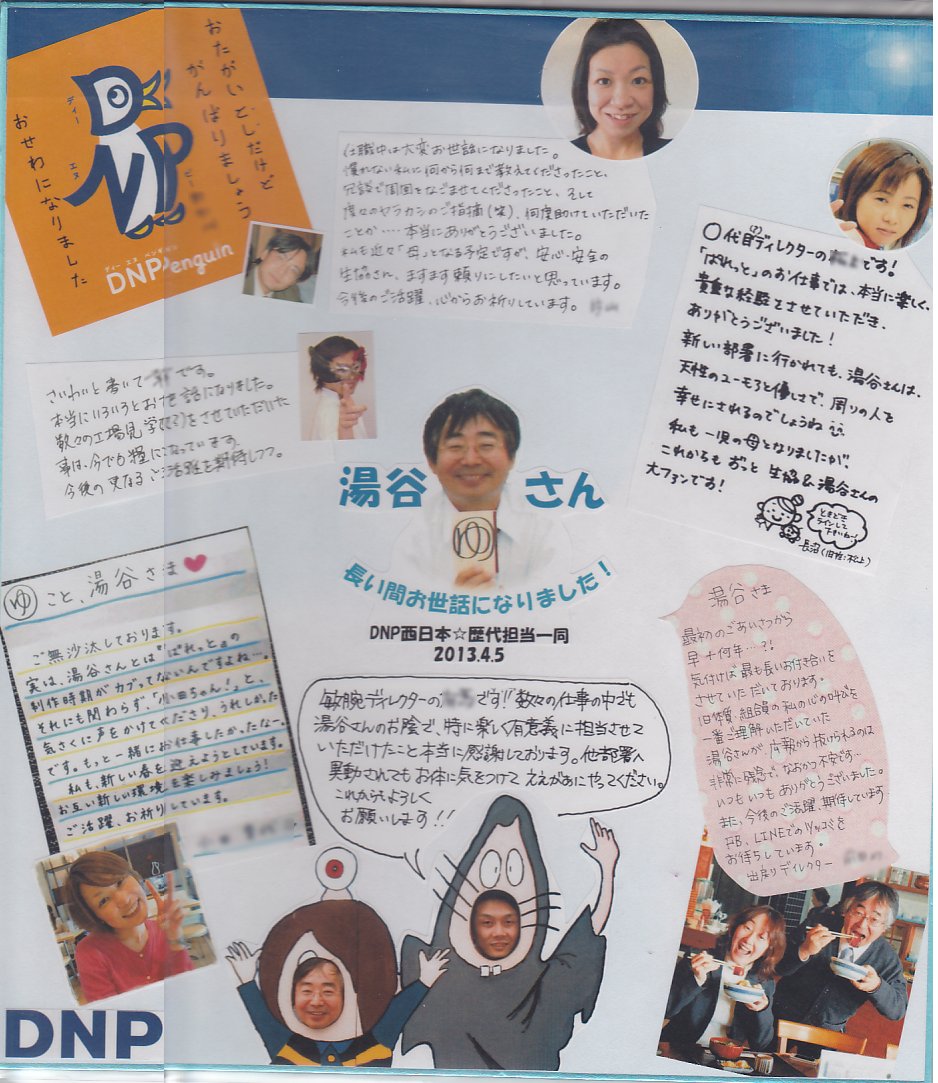 おたがいとしだけど
がんばりましょう
おせわになりました
ディー
エヌ
ピー
DNP
ディー エヌ ペンギン
DNPenguin
在職中は大変お世話になりました。
慣れない私に何から何まで教えてくださったこと、
冗談で周囲をなごませてくださったこと、そして
度々のヤラカシのご指摘(笑)、何度助けていただいた
ことか‥‥本当にありがとうございました。
私も近々「母」となる予定ですが、安心・安全の
生協さん、ますます頼りにしたいと思っています。
今後のご活躍、心からお祈りしています。
〇代目ディレクターの
です!
「ぱれっと」のお仕事では、本当に楽しく、
貴重な経験をさせていただき、
ありがとうございました!
新しい部署に行かれても、湯谷さんは、
天性のユーモアと優しさで、周りの人を
幸せにされるのでしょうね
私も一児の母となりましたが、
これからもずっと 生協&湯谷さんの
大ファンです!
ときどき
ラインして
下さいね〜!
長沼(旧姓:松上)
さいわいと書いて
です。
本当にいろいろとお世話になりました。
数々の工場見学をさせていただいた
事は、今でも糧になっています。
今後の更なるご活躍を期待しつつ。
湯谷さん
ゆ
長い間お世話になりました!
DNP西日本☆歴代担当一同
2013.4.5
ゆ こと、湯谷さま♥
ご無沙汰しております。
実は、湯谷さんとは『ぱれっと』の
制作時期がカブってないんですよね…
それにも関わらず、「小田ちゃん!」と、
気さくに声をかけてくださり、うれしかった
です。もっと一緒にお仕事したかったなー。
私も、新しい春を迎えようとしています。
お互い新しい環境を楽しみましょう!
ご活躍、お祈りしています。
敏腕ディレクターの
です!! 数々の仕事の中でも
湯谷さんのお陰で、特に楽しく有意義に担当させて
いただけたこと本当に感謝しております。他部署へ
異動されてもお体に気をつけて ええがぁにやってください。
これからもよろしく
お願いします!!
湯谷さま
最初のごあいさつから
早十何年…?!
気付けば最も長いお付き合いを
させていただいております。
旧体質・組合員の私の心の叫びを
一番ご理解いただいていた
湯谷さんが、広報から抜けられるのは
非常に残念で、なおかつ不安です…
いつもいつもありがとうございました。
また、今後のご活躍、期待しています
FB、LINEでのツッコミを
お待ちしています。
出戻りディレクター
DNP